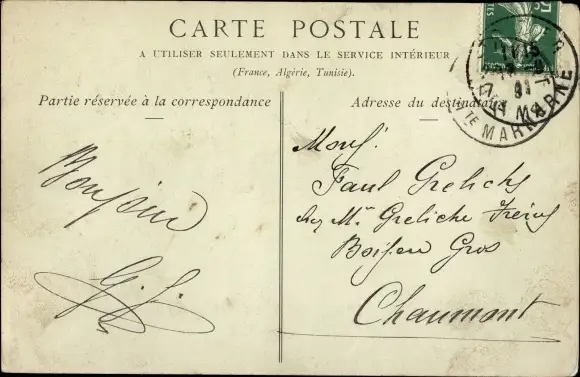 CARTE POSTALE
A UTILISER SEULEMENT DANS LE SERVICE INTÉRIEUR
(France, Algérie, Tunisie).
Partie réservée à la correspondance
Adresse du destinataire
Bonjour
Mons.
Paul
chez Mrs Greliche Frères
Gros
Chaumont
MARNE